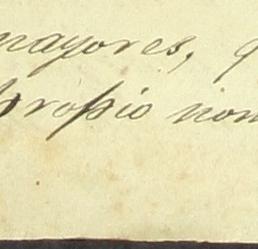 mayores, q
propio nom